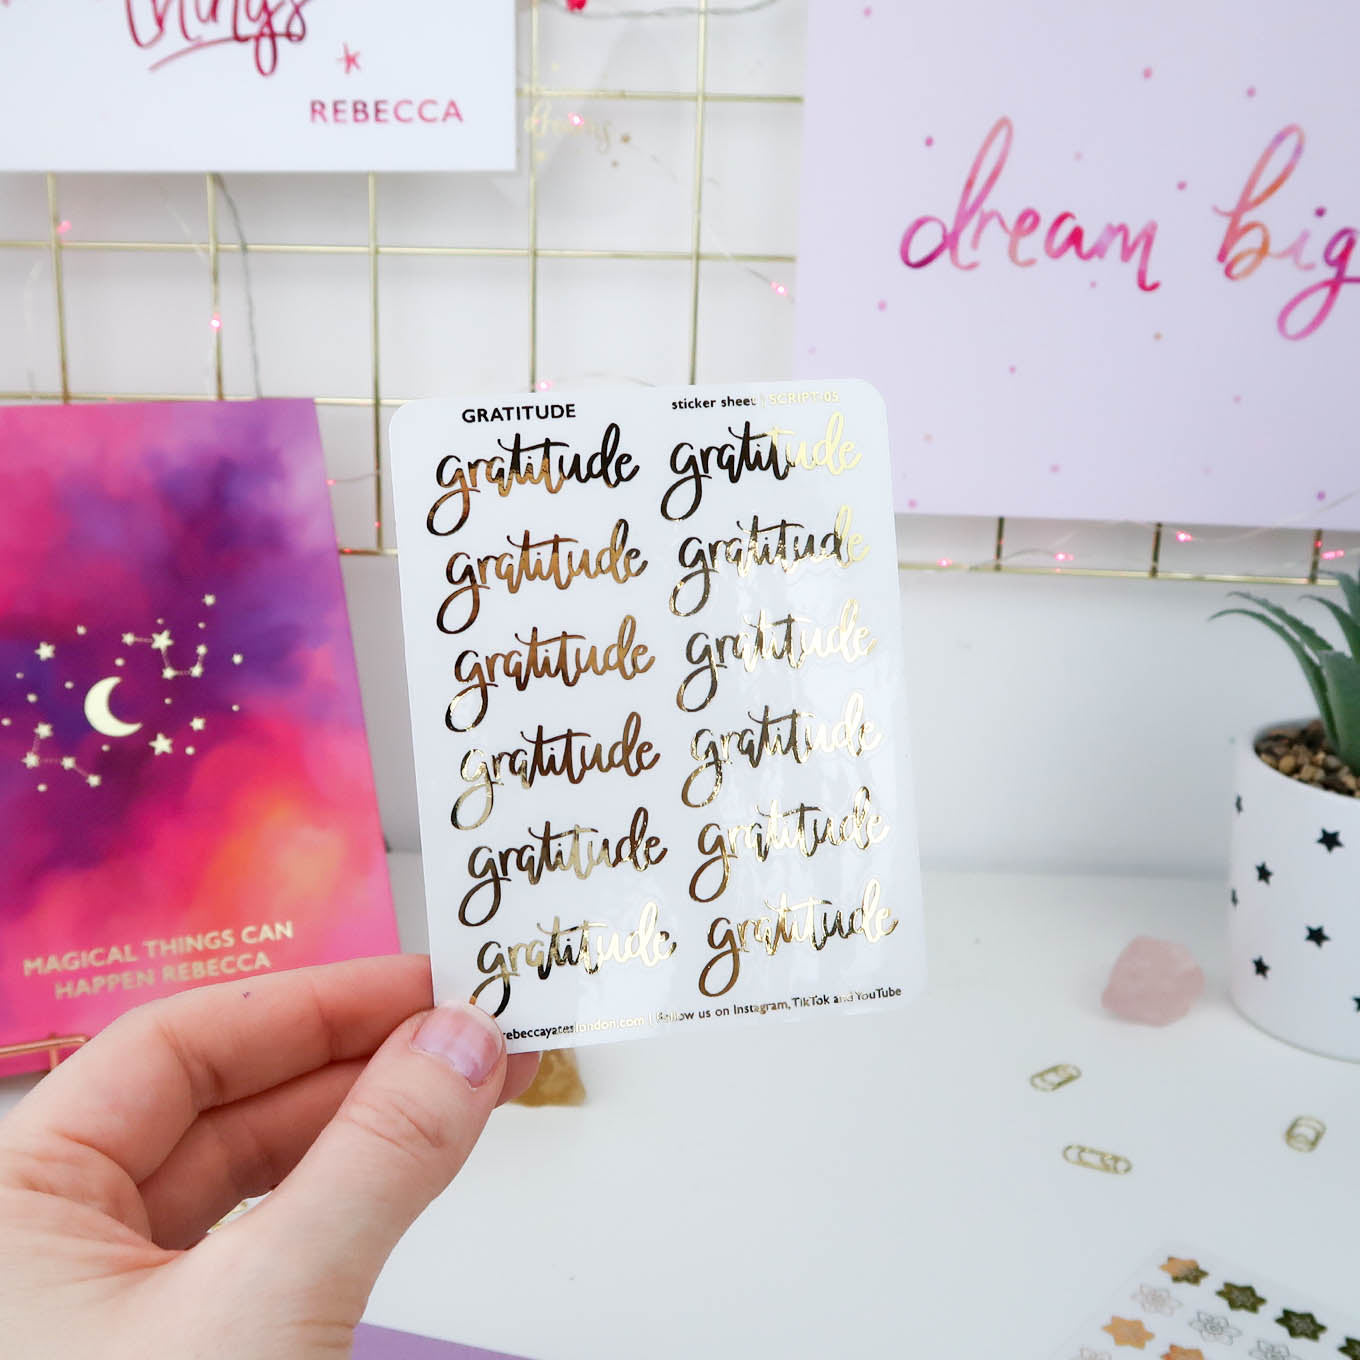 things
REBECCA
dreams
dream big
GRATITUDE
sticker sheet | SCRIPT-05
gratitude gratitude
gratitude gratitude
gratitude gratitude
gratitude gratitude
gratitude gratitude
gratitude gratitude
rebeccayateslondon.com | Follow us on Instagram, TikTok and YouTube
MAGICAL THINGS CAN
HAPPEN REBECCA